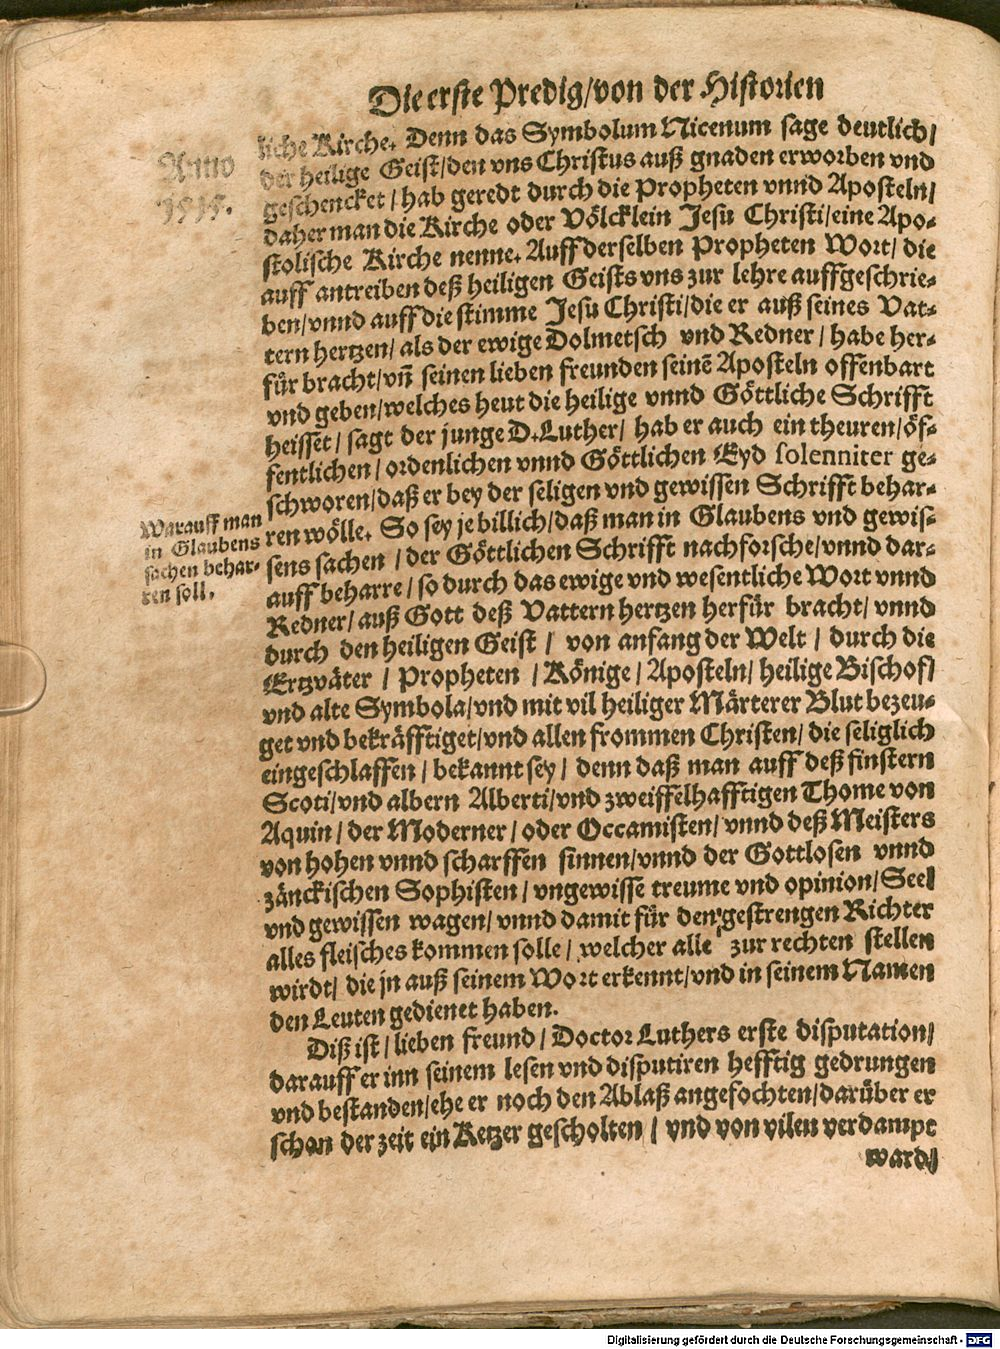 Die erste Predig/von der Historien
Anno
1515.
liche Kirche. Denn das Symbolum Nicenum sage deutlich/
der heilige Geist/den vns Christus auß gnaden erworben vnd
geschencket / hab geredt durch die Propheten vnnd Aposteln/
daher man die Kirche oder Völcklein Jesu Christi/eine Apo-
stolische Kirche nenne. Auff derselben Propheten Wort/ die
auff antreiben deß heiligen Geists vns zur lehre auffgeschrie-
ben/vnnd auff die stimme Jesu Christi/die er auß seines Vat-
tern hertzen/ als der ewige Dolmetsch vnd Redner / habe her-
für bracht/vñ seinen lieben freunden seinẽ Aposteln offenbart
vnd geben/welches heut die heilige vnnd Göttliche Schrifft
heisset/ sagt der junge D. Luther/ hab er auch ein theuren/öf-
fentlichen / ordenlichen vnnd Göttlichen Eyd solenniter ge-
schworen/daß er bey der seligen vnd gewissen Schrifft behar-
ren wölle. So sey je billich/daß man in Glaubens vnd gewis-
sens sachen / der Göttlichen Schrifft nachforsche/vnnd dar-
auff beharre / so durch das ewige vnd wesentliche Wort vnnd
Redner/ auß Gott deß Vattern hertzen herfür bracht/ vnnd
durch den heiligen Geist / von anfang der Welt / durch die
Ertzväter / Propheten / Könige / Aposteln/ heilige Bischof/
vnd alte Symbola/vnd mit vil heiliger Märterer Blut bezeu-
get vnd bekräfftiget/vnd allen frommen Christen/ die seliglich
eingeschlaffen / bekannt sey / denn daß man auff deß finstern
Scoti/vnd albern Alberti/vnd zweiffelhafftigen Thome von
Aquin / der Moderner / oder Occamisten/ vnnd deß Meisters
von hohen vnnd scharffen sinnen/vnnd der Gottlosen vnnd
zänckischen Sophisten / vngewisse treume vnd opinion/ Seel
vnd gewissen wagen/ vnnd damit für den gestrengen Richter
alles fleisches kommen solle / welcher alle zur rechten stellen
wirdt/ die jn auß seinem Wort erkennt/vnd in seinem Namen
den Leuten gedienet haben.
Warauff man
in Glaubens
sachen behar-
ren soll.
Diß ist / lieben freund / Doctor Luthers erste disputation/
darauff er inn seinem lesen vnd disputiren hefftig gedrungen
vnd bestanden/ehe er noch den Ablaß angefochten/darüber er
schon der zeit ein Ketzer gescholten / vnd von vilen verdampt
ward/
Digitalisierung gefördert durch die Deutsche Forschungsgemeinschaft - DFG